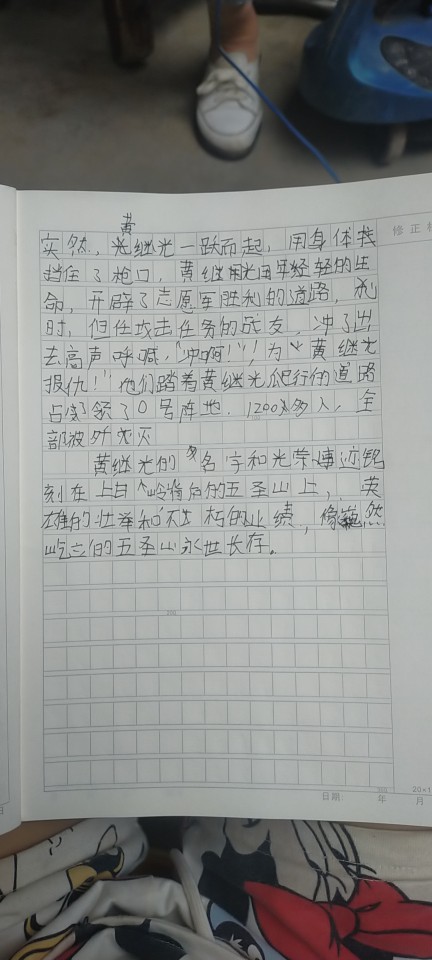 突然，黄继光一跃而起，用身体
挡住了枪口，黄继光用年轻的生
命，开辟了志愿军胜利的道路，
时，担任攻击任务的战友，冲了出
去高声呼喊，“冲啊！”，为“黄继光
报仇！”他们踏着黄继光爬行的道路
占领了0号阵地。1200多人，全
部被歼灭
黄继光的名字和光荣事迹铭
刻在上甘岭的五圣山上，英
雄的壮举和不朽的业绩，像巍然
屹立的五圣山永世长存。
修正
日期 年 月
20×1